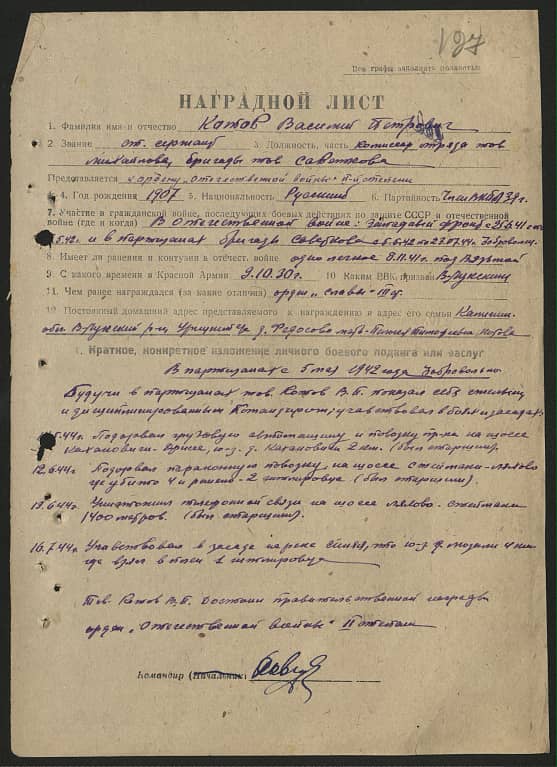 197
Все графы заполнять полностью
НАГРАДНОЙ ЛИСТ
1. Фамилия имя и отчество Котов Василий Петрович
2. Звание ст. сержант 3. Должность, часть комиссар отряда тов
Михайлова, бригады тов
Представляется к ордену „Отечественной войны" II-й степени
4. Год рождения 1907 5. Национальность Русский 6. Партийность
7. Участие в гражданской войне, последующих боевых действиях по защите СССР и отечественной
войне (где и когда) В Отечественной войне: Западный фронт с
и в партизанах бригады с 5.5.42 по 23.07.44
8. Имеет ли ранения и контузии в отечест. войне одно легкое 8.11.41 под
9. С какого времени в Красной Армии 9.10.30г. 10. Каким РВК призван
11. Чем ранее награждался (за какие отличия) орден „Славы"
12. Постоянный домашний адрес представляемого к награждению и адрес его семьи Калинин.
обл. р-н, д. Федосово Котова
1. Краткое, конкретное изложение личного боевого подвига или заслуг
В партизанах с 5 мая 1942 года добровольно.
Будучи в партизанах тов. Котов В.П. показал себя смелым
и дисциплинированным командиром; участвовал в боях и засадах.
5.44г. Подорвал грузовую автомашину и повозку пр-ка на шоссе
ю-з. д. Кахановичи 2 км. (был старшим).
12.6.44г. Подорвал повозку на шоссе
убито 4 и ранено 2 (был старшим).
Уничтожил телефонной связи на шоссе
1400 метров. (был старшим).
16.7.44г. Участвовал в засаде на реке что ю-з д. 4 км
где взял в плен 1
Тов. Котов В.П. Достоин правительственной награды
орден „Отечественной войны" II степени
Командир (Начальник)